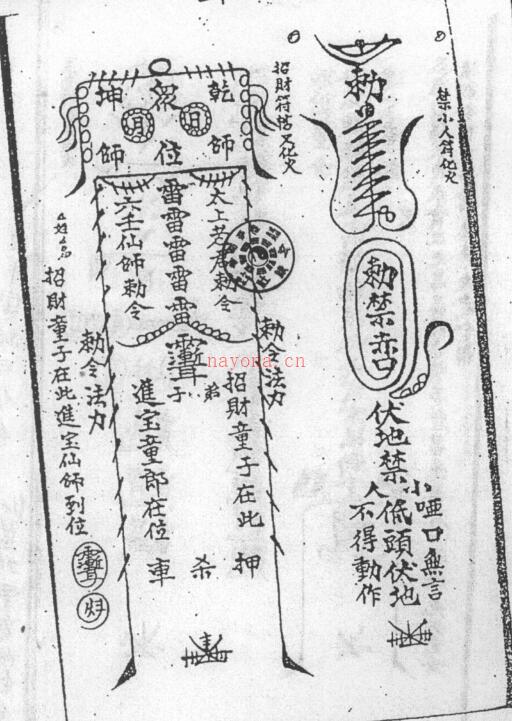 禁小人符化火
勅
勅禁赤口
伏地禁
小人
啞口無言
低頭伏地
不得動作
招財符搭天化火
乾師
眾位
坤師
日
月
太上老君勅令
雷雷雷雷雷
六壬仙師勅令
勅令法力
弟子
招財童子在此
進宝童郎在位
押煞車
勅令法力
招財童子在此進宝仙師到位
nayona.cn